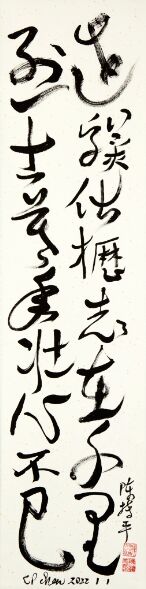 老驥伏櫪志在千里
烈士暮年壮心不已
CP Chan 2022 11